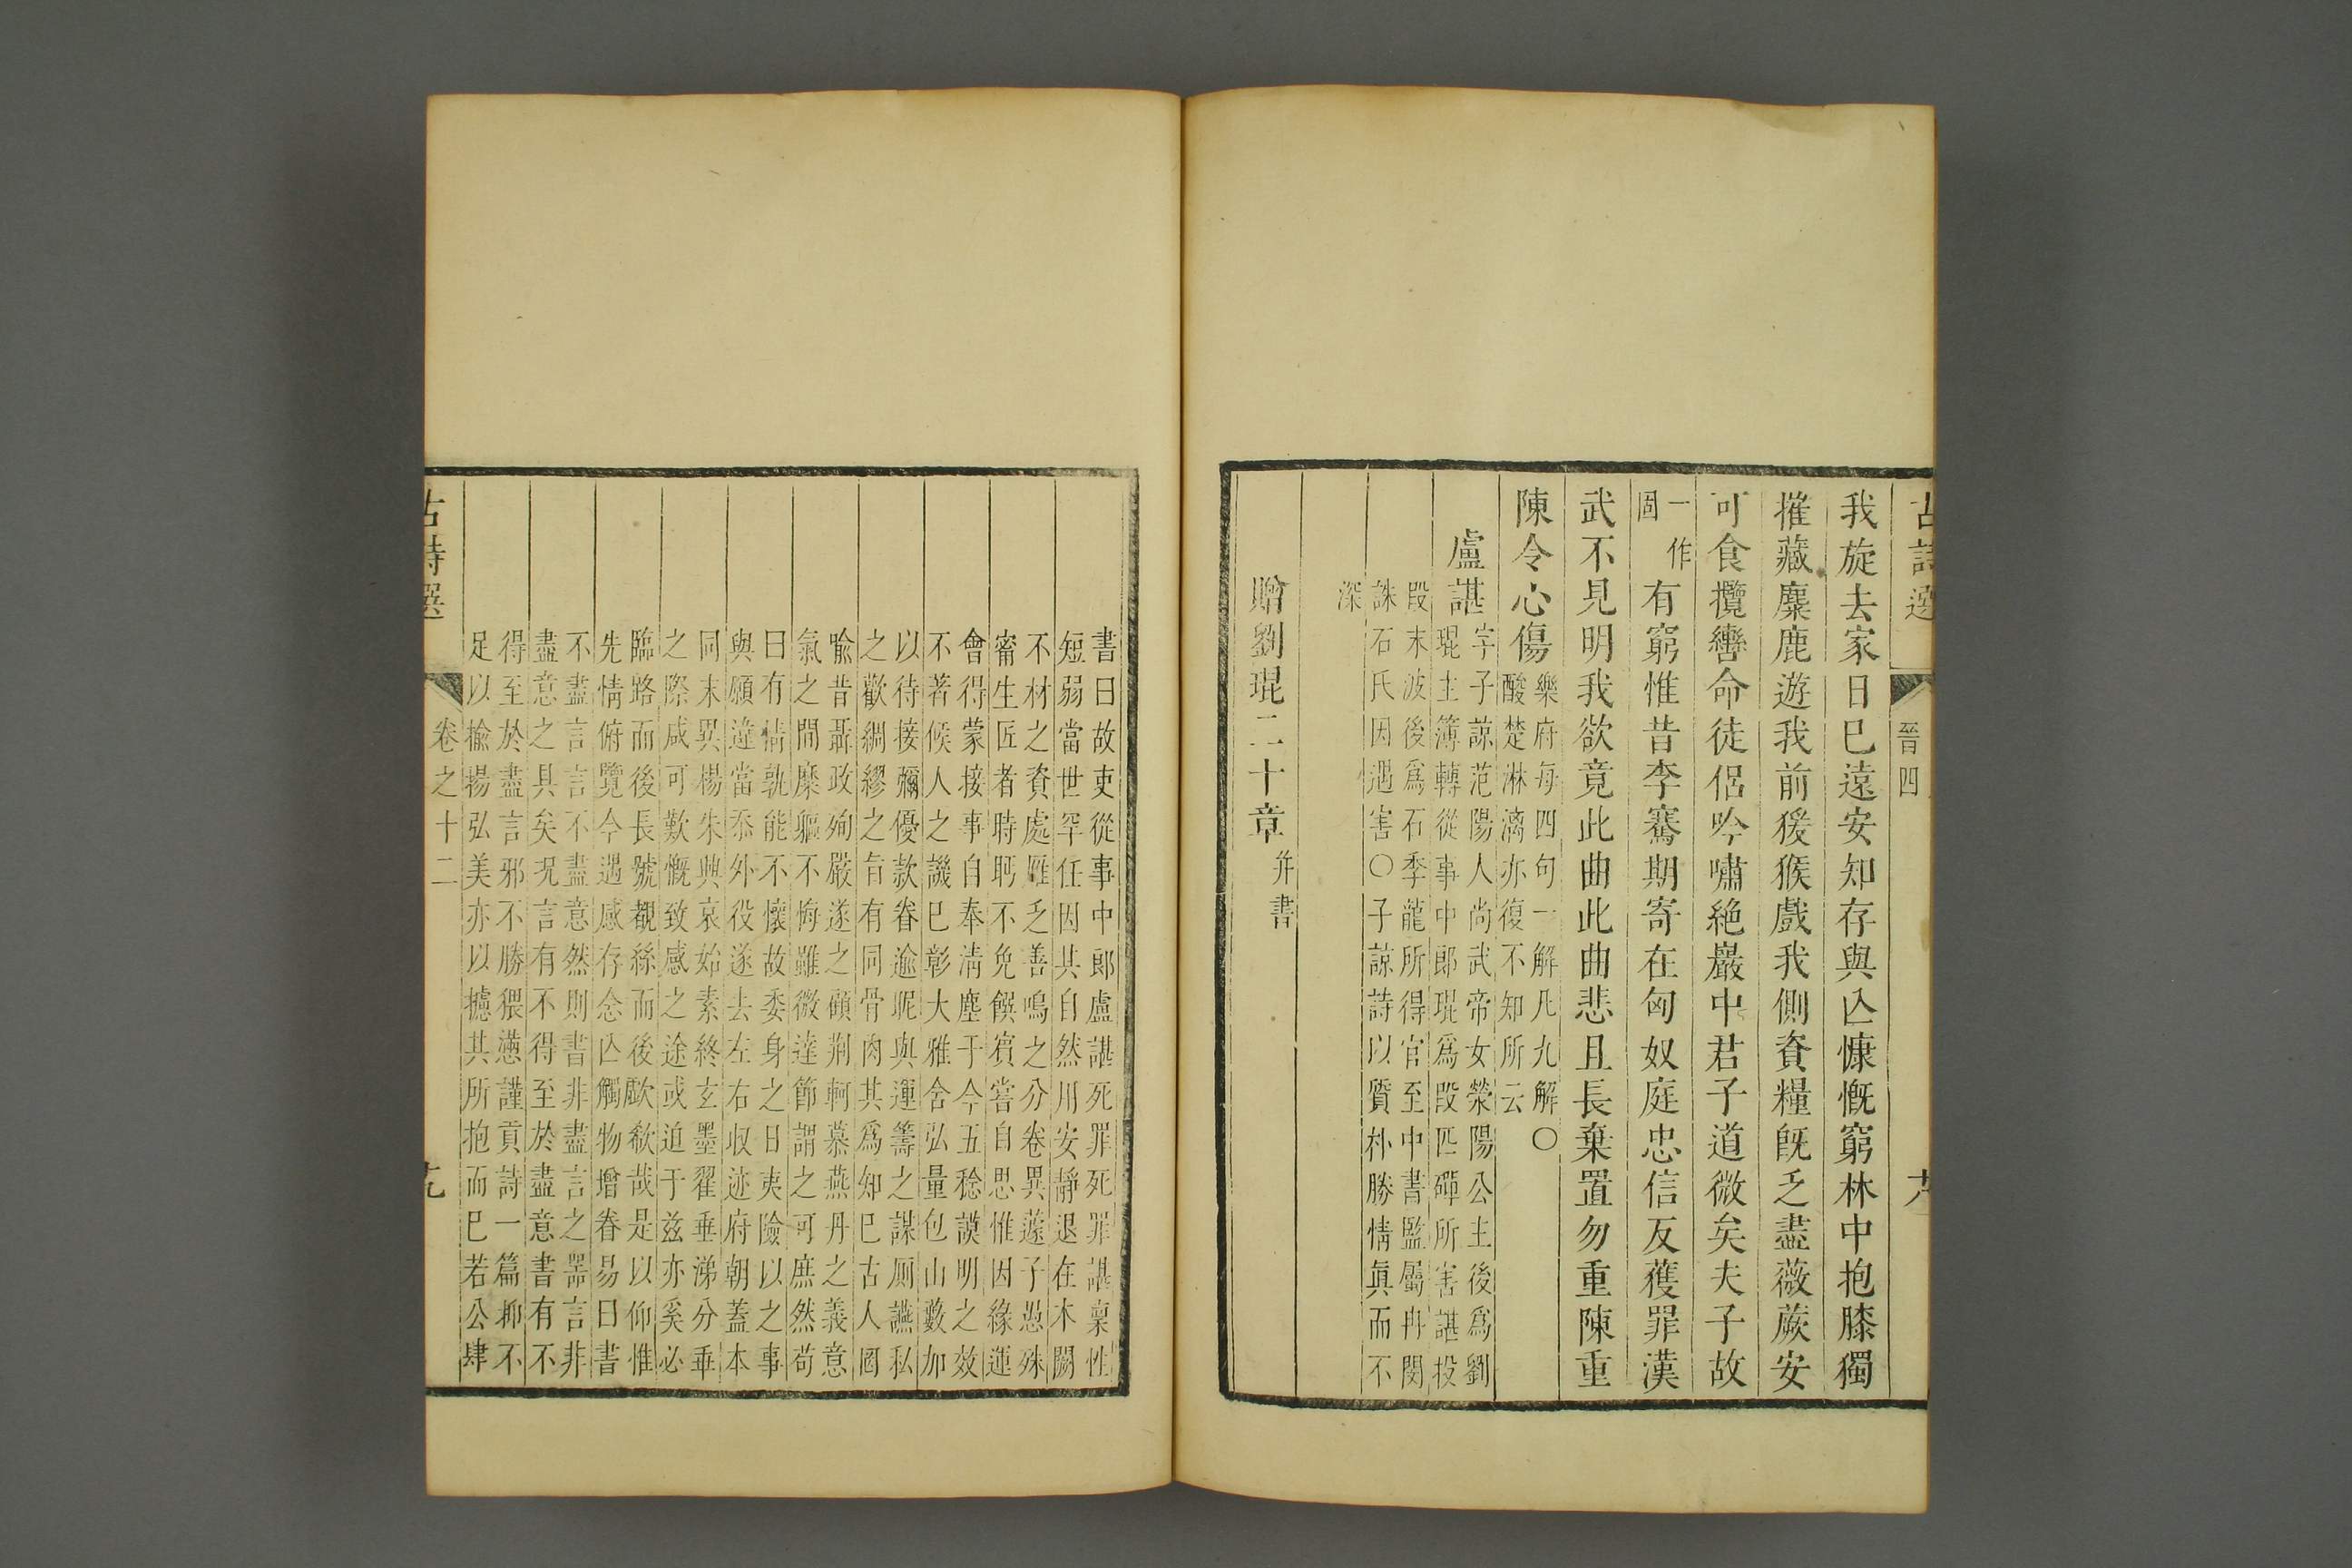 古詩選
晉四
我旋去家日巳遠安知存與亾慷慨窮林中抱膝獨
摧藏麋鹿遊我前猨猴戲我側資糧旣乏盡薇蕨安
可食攬轡命徒侶吟嘯絶巖中君子道微矣夫子故
一作
固
有窮惟昔李騫期寄在匈奴庭忠信反獲罪漢
武不見明我欲竟此曲此曲悲且長棄置勿重陳重
陳令心傷
樂府每四句一解凡九解〇
酸楚淋漓亦復不知所云
盧諶
字子諒范陽人尚武帝女滎陽公主後爲劉
琨主簿轉從事中郎琨爲段匹磾所害諶投
段末波後爲石季龍所得官至中書監屬冉閔
誅石氏因遇害〇子諒詩以質朴勝情眞而不
深
贈劉琨二十章
并書
書曰故吏從事中郎盧諶死罪死罪諶稟性
短弱當世罕任因其自然用安靜退在木闕
不材之資處雁乏善鳴之分卷異蘧子愚殊
甯生匠者時眄不免饌賓嘗自思惟因緣運
會得蒙接事自奉淸塵于今五稔謨明之效
不著候人之譏巳彰大雅含弘量包山藪加
以待接彌優款眷逾昵與運籌之謀厠讌私
之歡綢繆之旨有同骨肉其爲知巳古人罔
喻昔聶政殉嚴遂之顧荆軻慕燕丹之義意
氣之間糜軀不悔雖微達節謂之可庶然苟
曰有情孰能不懷故委身之日夷險以之事
與願違當忝外役遂去左右收迹府朝蓋本
同末異楊朱興哀始素終玄墨翟垂涕分乖
之際咸可歎慨致感之途或迫于兹亦奚必
臨路而後長號覩絲而後歔欷哉是以仰惟
先情俯覽今遇感存念亾觸物增眷易曰書
不盡言言不盡意然則書非盡言之噐言非
盡意之具矣况言有不得至於盡意書有不
得至於盡言邪不勝猥懣謹貢詩一篇抑不
足以揄揚弘美亦以攄其所抱而巳若公肆
古詩選
卷之十二